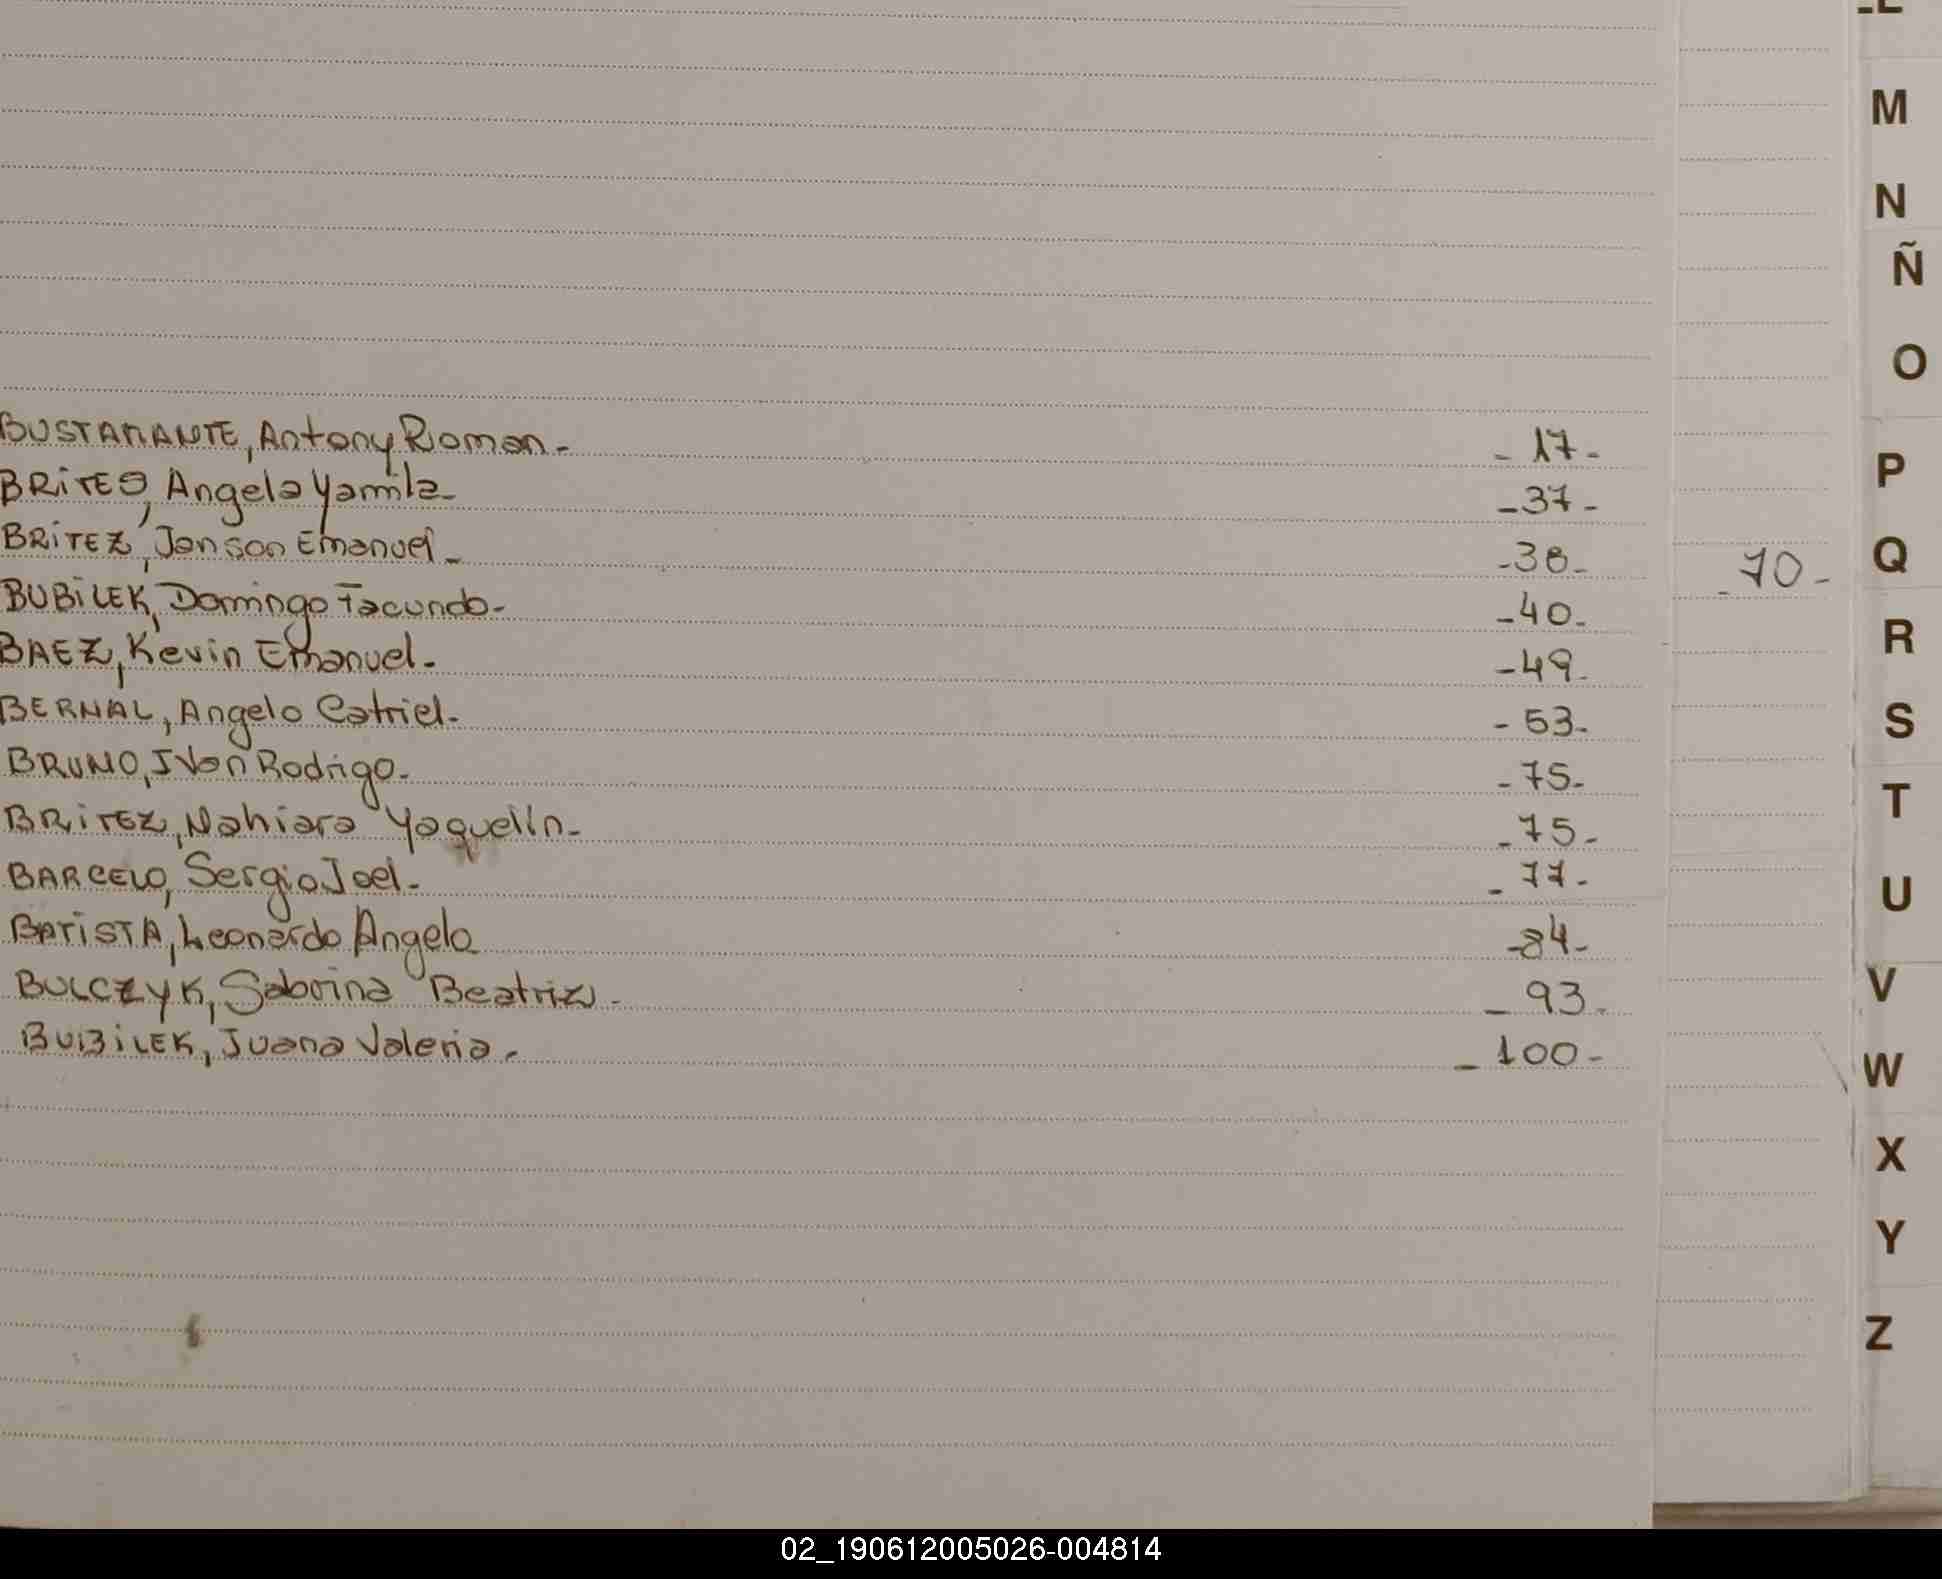 BUSTAMANTE, Antony Roman - - 17 -
BRITES, Angela Yamila - - 37 -
BRITEZ, Janson Emanuel - - 38 -
BUBILEK, Domingo Facundo - - 40 -
BAEZ, Kevin Emanuel - - 49 -
BERNAL, Angelo Catriel - - 53 -
BRUNO, Ivan Rodrigo - - 75 -
BRITEZ, Nahiara Yaquelin - - 75 -
BARCELO, Sergio Joel - - 77 -
BATISTA, Leonardo Angelo - 84 -
BULCZYK, Sabrina Beatriz - - 93 -
BUBILEK, Juana Valeria - - 100 -
- 70 -
L
M
N
Ñ
O
P
Q
R
S
T
U
V
W
X
Y
Z
02_190612005026-004814